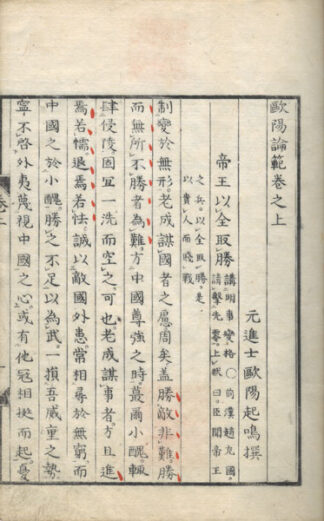 歐陽論範卷之上
元進士歐陽起鳴撰
帝王以全取勝
講明事變格〇前漢趙充國
請擊先零上狀曰臣聞帝王
之兵以全取勝是
以貴人而賤戰
制變於無形老成謀國者之慮周矣蓋勝敵非難勝
而無所不勝者為難方中國尊強之時蕞爾小醜輒
肆侵陵固宜一洗而空之可也老成謀事者方且進
焉若懦退焉若怯誠以敵國外患常相尋於無窮而
中國之於小醜勝之不足以為武一損吾威重之勢
寧不啓外夷蔑視中國之心或有他寇相挺而起憂